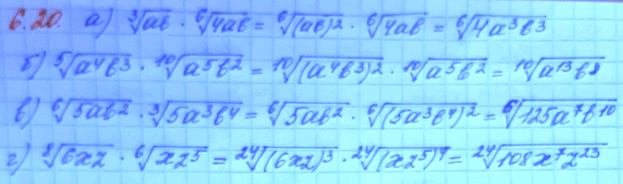 6.20. а) ∛ab · ⁶√4ab = ⁶√(ab)² · ⁶√4ab = ⁶√4a³b³
б) ⁵√a⁴b³ · ¹⁰√a⁵b² = ¹⁰√(a⁴b³)² · ¹⁰√a⁵b² = ¹⁰√a¹³b⁸
в) ⁶√5ab² · ∛5a³b⁴ = ⁶√5ab² · ⁶√(5a³b⁴)² = ⁶√125a⁷b¹⁰
г) ⁸√6xz · ⁶√xz⁵ = ²⁴√(6xz)³ · ²⁴√(xz⁵)⁴ = ²⁴√108x⁷z²³